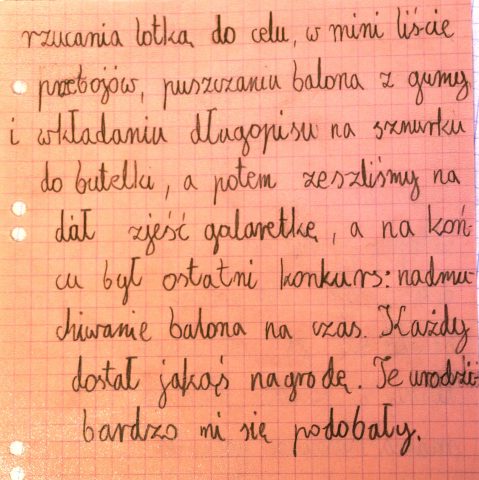 rzucania lotką do celu, w mini liście
przebojów, puszczaniu balona z gumy
i wkładaniu długopisu na sznurku
do butelki, a potem zeszliśmy na
dáł zjeść galaretkę, a na koń-
cu był ostatni konkurs: nadmu-
chiwanie balona na czas. Każdy
dostał jakąś nagrodę. Te urodzi-
bardzo mi się podobały.